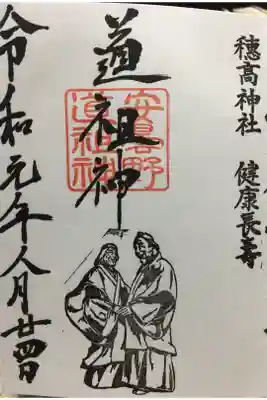 穂高神社 健康長寿
道祖神
安曇野
道祖神
令和元年八月廿四日